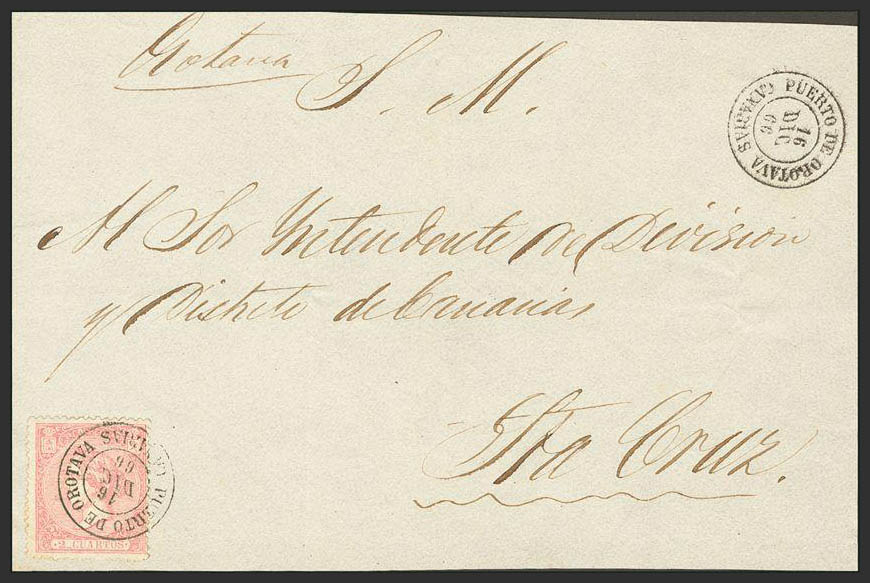 Orotava
S. M.
PUERTO DE OROTAVA CANARIAS
16
DIC
66
Al Sor Yntendente de Division
y Distrito de Canarias
Sta Cruz.
PUERTO DE OROTAVA CANARIAS
16
DIC
66
2 CUARTOS